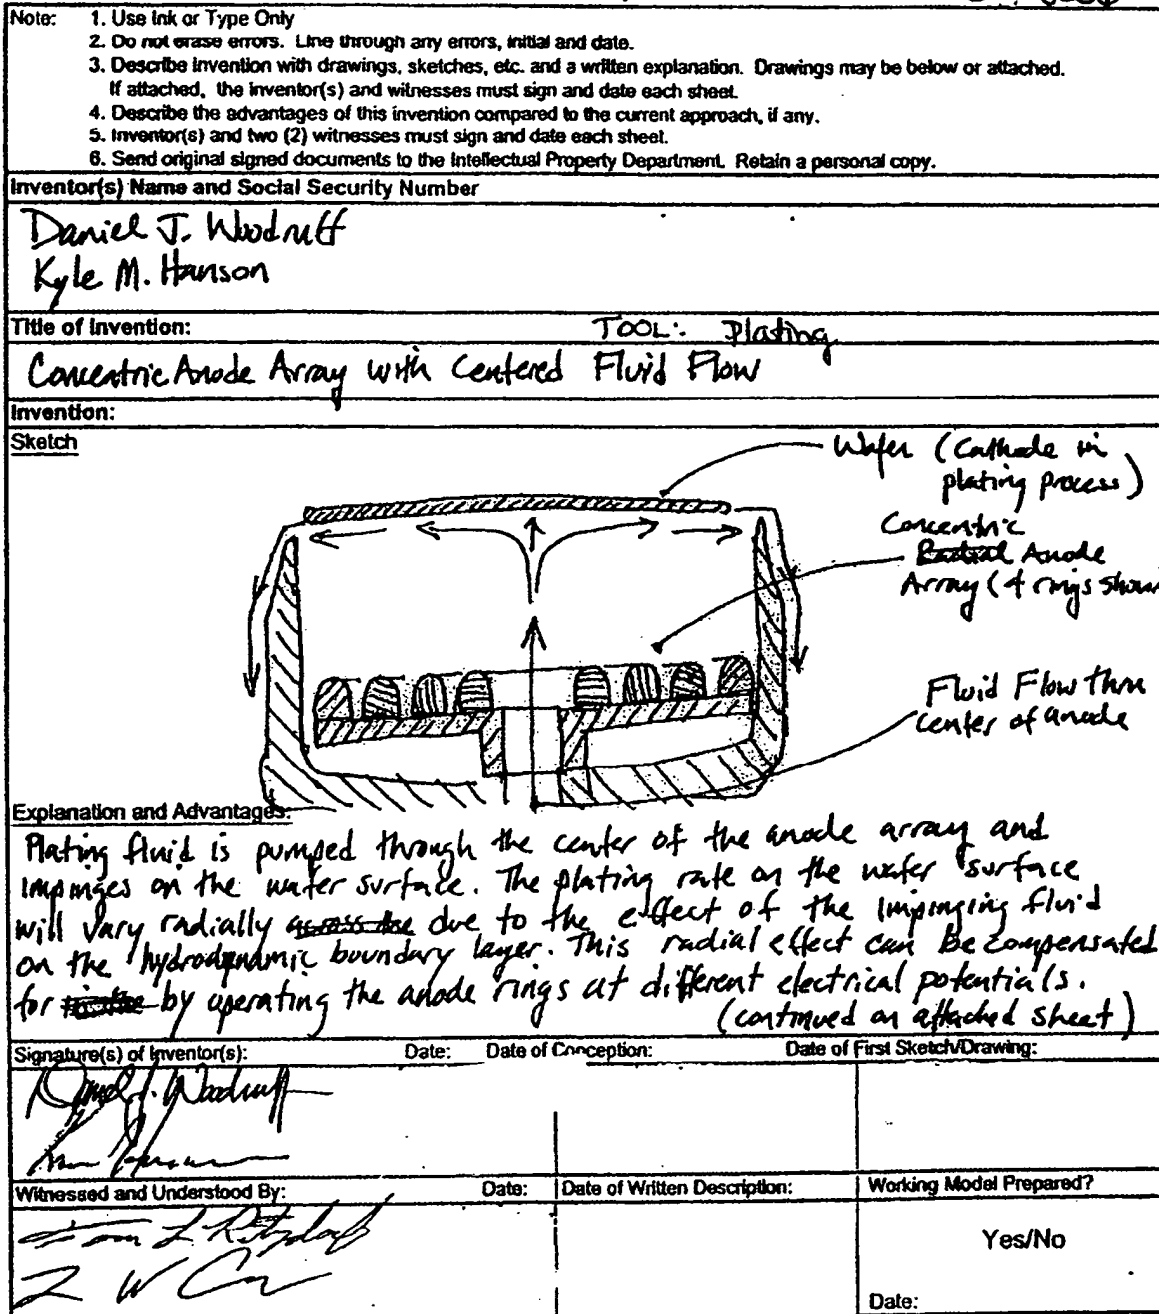 Note: 1. Use Ink or Type Only
2. Do not erase errors. Line through any errors, initial and date.
3. Describe invention with drawings, sketches, etc. and a written explanation. Drawings may be below or attached.
If attached, the inventor(s) and witnesses must sign and date each sheet.
4. Describe the advantages of this invention compared to the current approach, if any.
5. Inventor(s) and two (2) witnesses must sign and date each sheet.
6. Send original signed documents to the Intellectual Property Department. Retain a personal copy.
Inventor(s) Name and Social Security Number
Daniel J. Woodruff
Kyle M. Hanson
Title of Invention: TOOL: Plating
Concentric Anode Array with Centered Fluid Flow
Invention:
Sketch
Wafer (Cathode in
plating process)
Concentric
Radial Anode
Array (4 rings shown
Fluid Flow thru
center of anode
Explanation and Advantages:
Plating fluid is pumped through the center of the anode array and
impinges on the wafer surface. The plating rate on the wafer surface
will vary radially across the due to the effect of the impinging fluid
on the hydrodynamic boundary layer. This radial effect can be compensated
for by operating the anode rings at different electrical potentials.
(continued on attached sheet)
Signature(s) of Inventor(s): Date: Date of Conception: Date of First Sketch/Drawing:
Daniel J. Woodruff
Witnessed and Understood By: Date: Date of Written Description: Working Model Prepared?
Yes/No
Date: